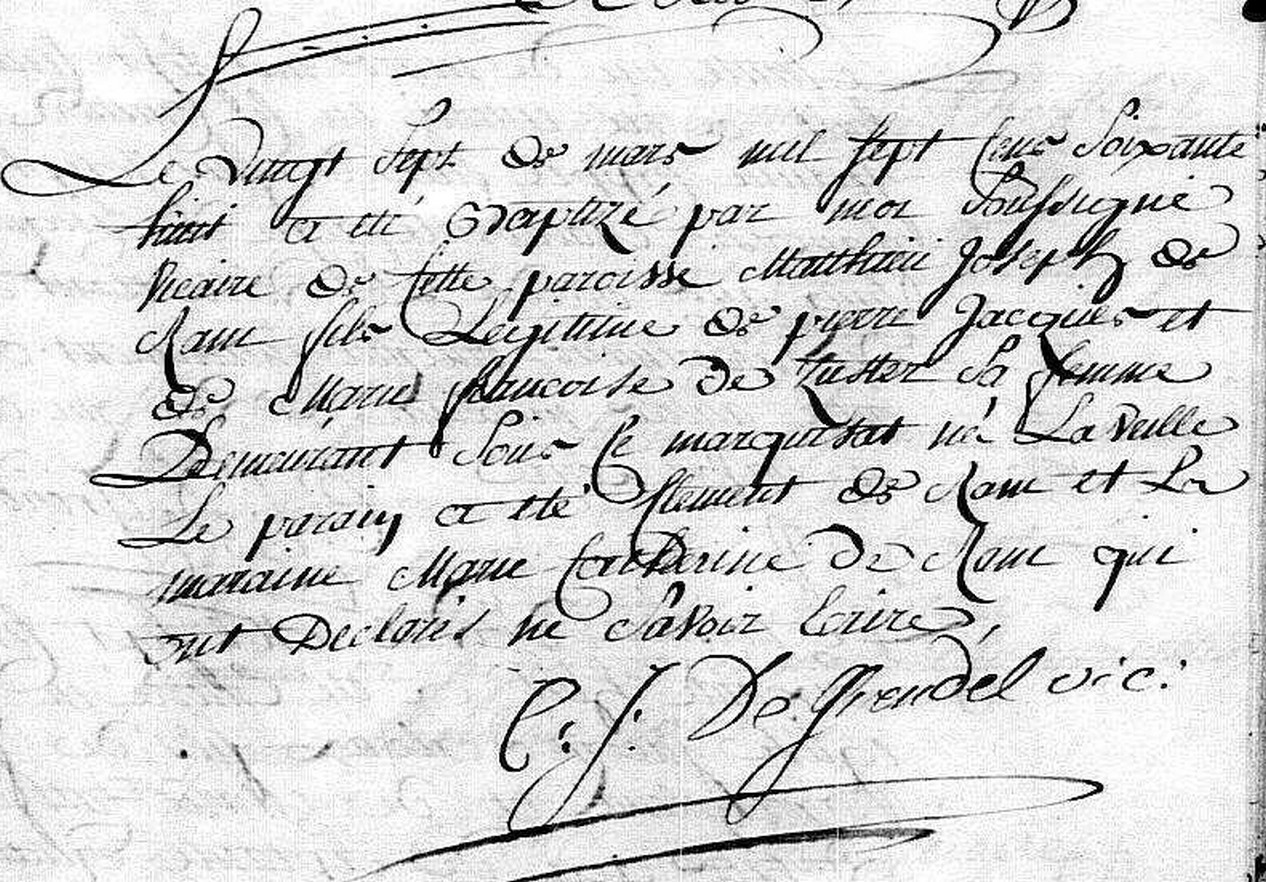 Le vingt sept de mars mil sept cens soixante
huit a eté Baptizé par moi soussigné
vicaire de cette paroisse Matthieu Joseph de
Ram fils Legitime de pierre Jacques et
de Marie francoise de Zutter sa femme
Demeurant sous ce marquisat né La veille
Le parain a eté Clement de Ram et La
maraine Marie Catherine de Ram qui
ont Declarés ne savoir Ecrire,
C: J: De Grendel vic: